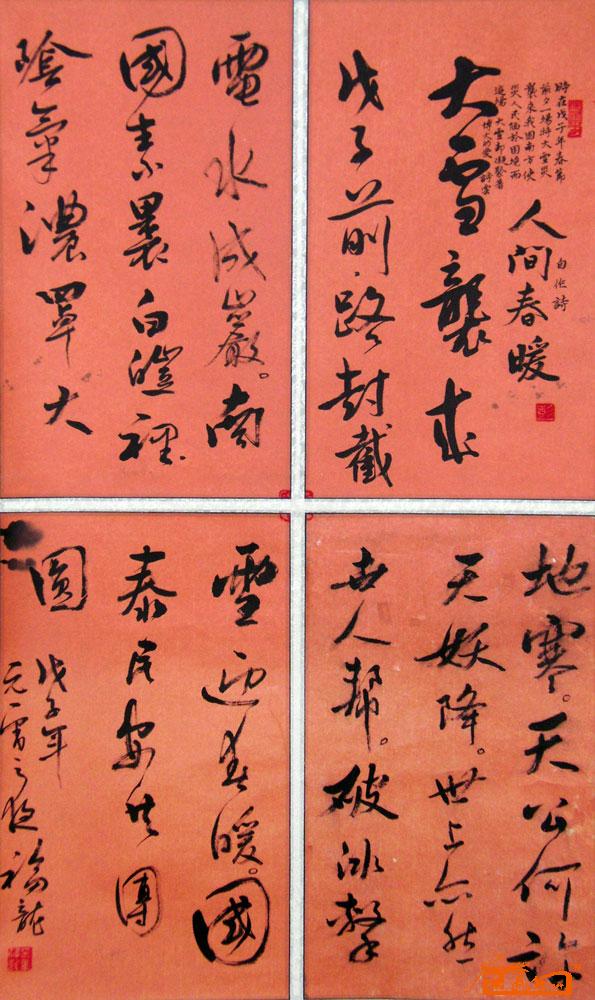 時在戊子年春節
前夕一場特大雪災
襲來我國南方使
災人民於困境而
大雪卻凝聚着
博大的愛 詩云
人間春暖
自作詩
大雪襲来
戊子前。路封截
電水成巖。南
國素裹白皚裡
陰氣濃罩大
地寒。天公何許
天妖降。世上亦然
世人幫。破冰擊
雪迎春暖。國
泰民安共團
圓
戊子年
元宵之夜 福龍